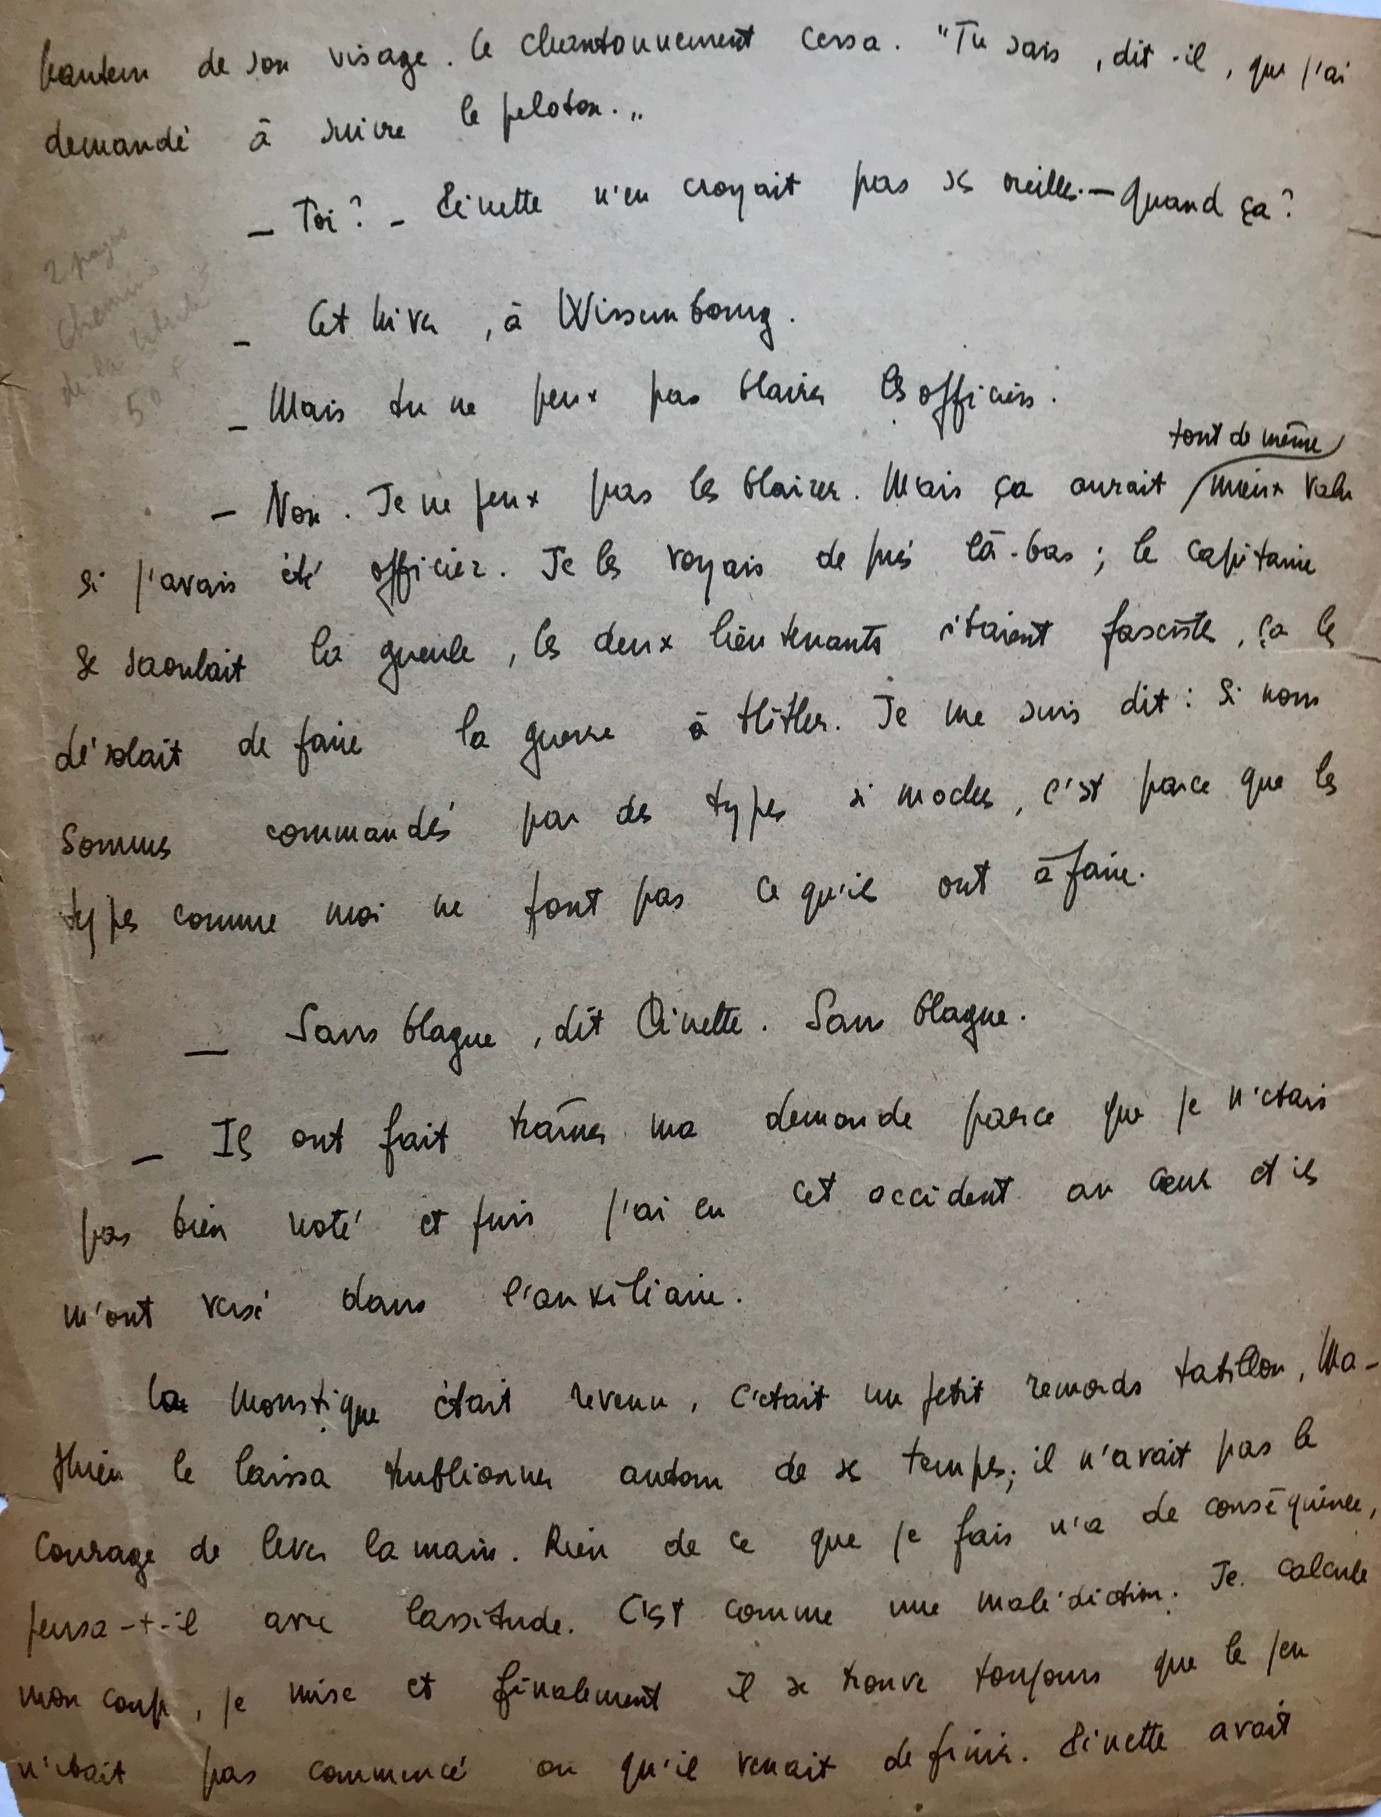 hauteur de son visage. Le chantonnement cessa. "Tu sais, dit-il, que j'ai
demandé à suivre le peloton. "
— Toi? — Pinette n'en croyait pas ses oreilles. — Quand ça?
2 pages
Chemins
de la liberté
50 F
— Cet hiver, à Wissembourg.
— Mais tu ne peux pas blairer les officiers.
tout de même
— Non. Je ne peux pas les blairer. Mais ça aurait mieux valu
si j'avais été officier. Je les voyais de près là-bas; le capitaine
se saoulait la gueule, les deux lieutenants étaient fascistes, ça les
désolait de faire la guerre à Hitler. Je me suis dit: si nous
sommes commandés par des types si moches, c'est parce que les
types comme moi ne font pas ce qu'ils ont à faire.
— Sans blague, dit Pinette. Sans blague.
— Ils ont fait traîner ma demande parce que je n'étais
pas bien noté et puis j'ai eu cet accident au cœur et ils
m'ont versé dans l'auxiliaire.
Le moustique était revenu, c'était un petit remords tatillon, Ma-
thieu le laissa tourbillonner autour de ses tempes; il n'avait pas le
courage de lever la main. Rien de ce que je fais n'a de conséquence,
pensa-t-il avec lassitude. C'est comme une malédiction. Je calcule
mon coup, je mise et finalement il se trouve toujours que le jeu
n'était pas commencé ou qu'il venait de finir. Pinette avait